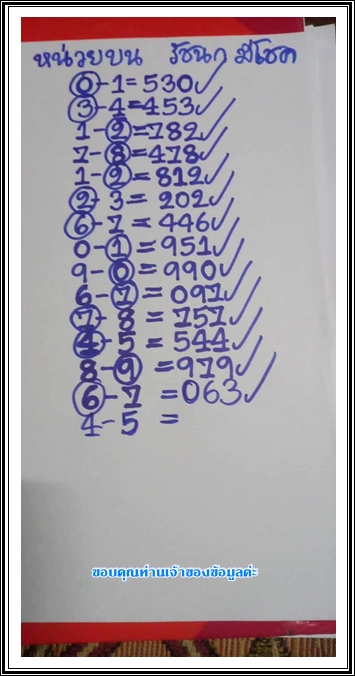 หน่วยบน รัชนก มีโชค
0-1=530✓
3-4=453✓
1-2=782✓
7-8=478✓
1-2=812✓
2-3=202✓
6-7=446✓
0-1=951✓
9-0=990✓
6-7=097✓
7-8=757✓
4-5=544✓
8-9=979✓
6-7=063✓
4-5=
ขอบคุณท่านเจ้าของข้อมูลค่ะ